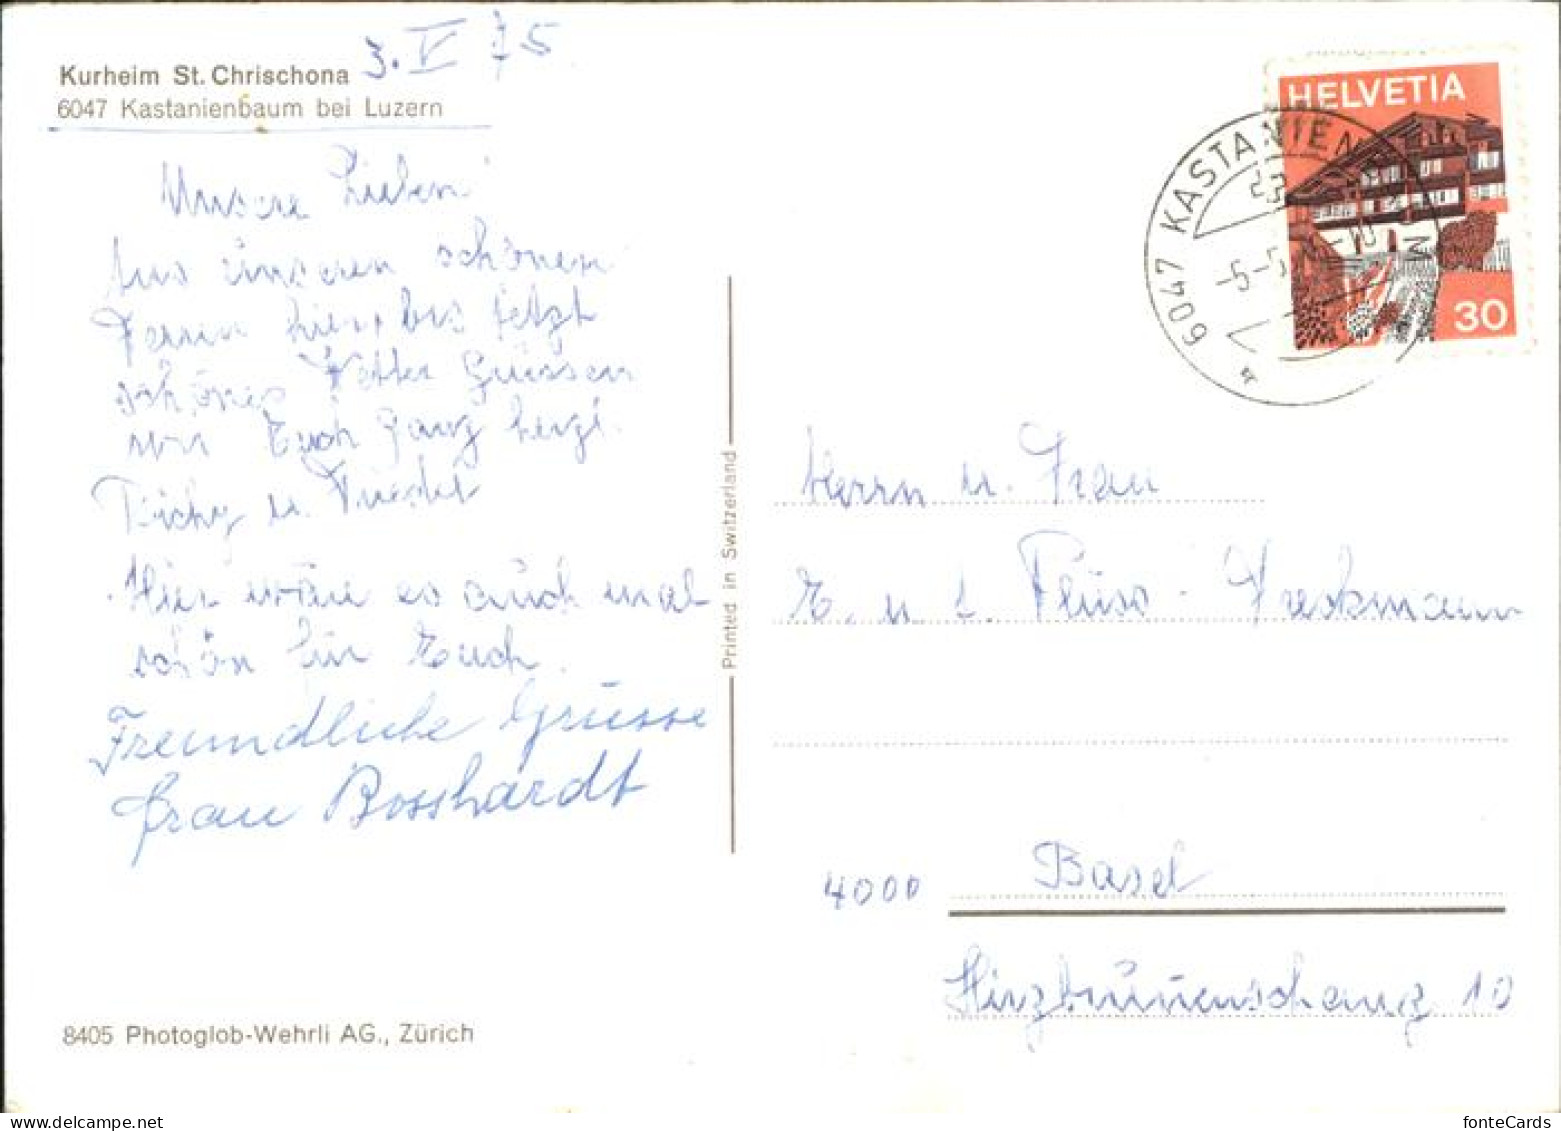 Kurheim St. Chrischona
3. V 75
6047 Kastanienbaum bei Luzern
Unsere Lieben!
Aus unseren schönen
Ferien hier, bis jetzt
schönes Wetter Grüssen
wir Euch ganz herzl.
u. Friedel
Hier wäre es auch mal
schön für Euch.
Freundliche Grüsse
Frau Bosshardt
8405 Photoglob-Wehrli AG., Zürich
Printed in Switzerland
HELVETIA
30
6047 KASTANIENBAUM
-5-5
Herrn u. Frau
E. u. L. Flüss -
4000 Basel
Hirzbrunnenschanz 10
fonteCards